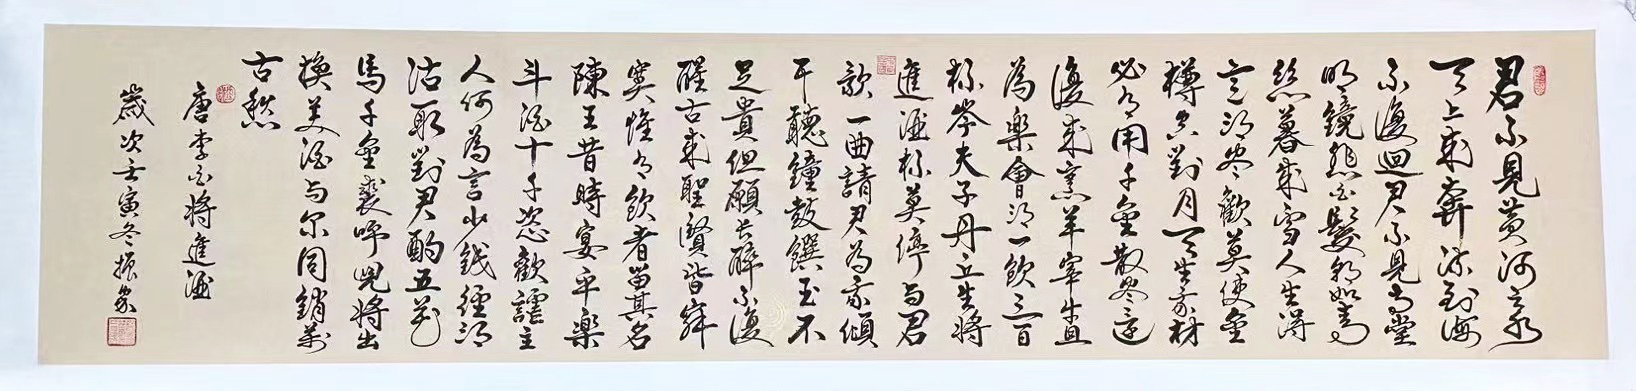 君不見黄河之水
天上来奔流到海
不復迴君不見高堂
明鏡悲白髮朝如青
絲暮成雪人生得
意須盡歡莫使金
樽空對月天生我材
必有用千金散盡還
復来烹羊宰牛且
為樂會須一飲三百
杯岑夫子丹丘生將
進酒杯莫停与君
歌一曲請君為我傾
耳聽鐘鼓饌玉不
足貴但願長醉不復
醒古来聖賢皆寂
寞惟有飲者留其名
陳王昔時宴平樂
斗酒十千恣歡謔主
人何為言少錢徑須
沽取對君酌五花
馬千金裘呼兒將出
換美酒与尔同銷萬
古愁
唐李白將進酒
歲次壬寅冬振家